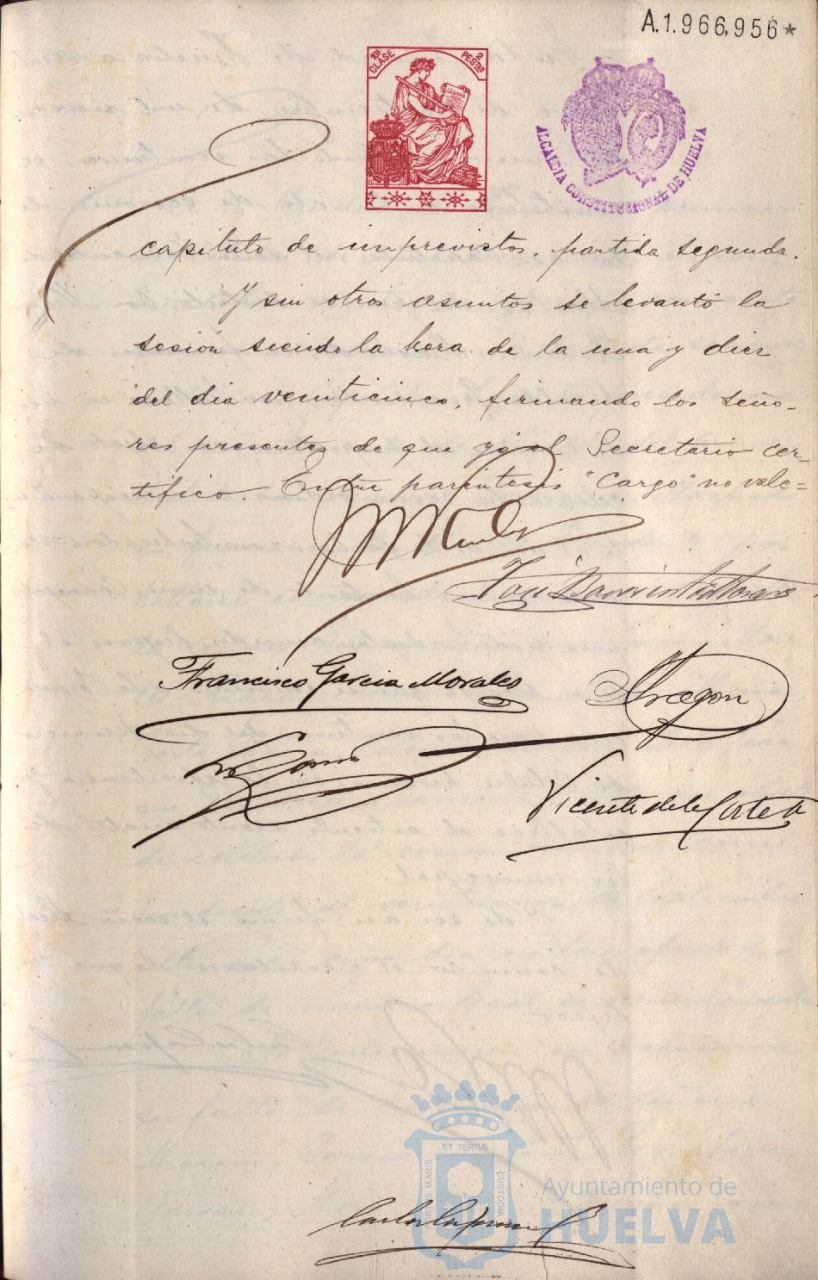 A.1.966.956*
10ª CLASE 2 PESTAS
ALCALDIA CONSTITUCIONAL DE HUELVA
capitulo de imprevistos. partida segunda.
Y sin otros asuntos se levantó la
sesión siendo la hora de la una y diez
del dia veinticinco, firmando los seño-
res presentes de que yo el Secretario cer-
tifico. Entre parentesis "Cargo" no vale=
Francisco Garcia Morales
Aragon
Vicente de la Corte
ET TERRÆ
PORTUS MARIS
CUSTODIA
Ayuntamiento de
HUELVA
Carlos